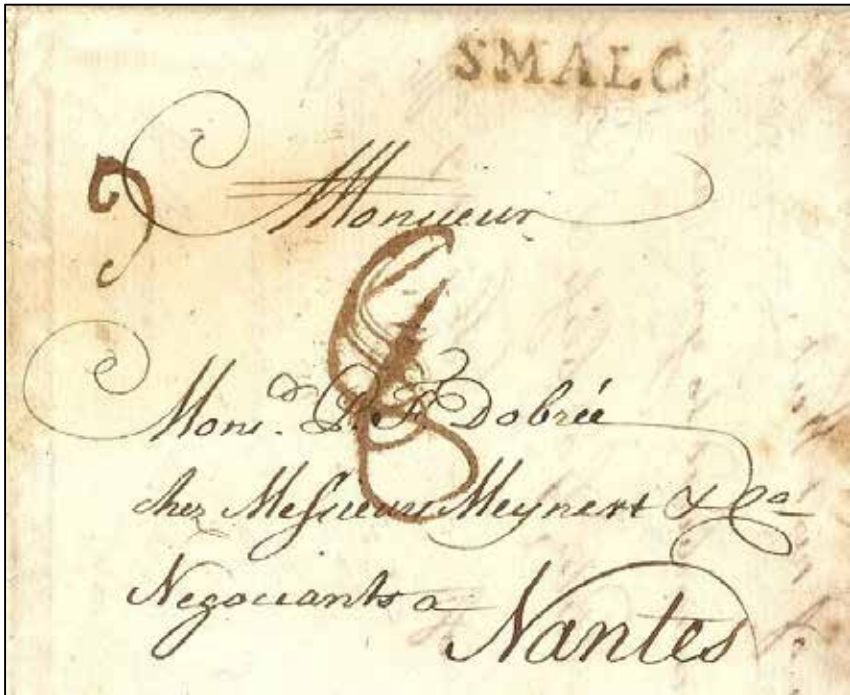 SMALO
Monsieur
8
Mons.r P. F. Dobrée
chez Messieurs Meynert & Ca
Negociants a Nantes